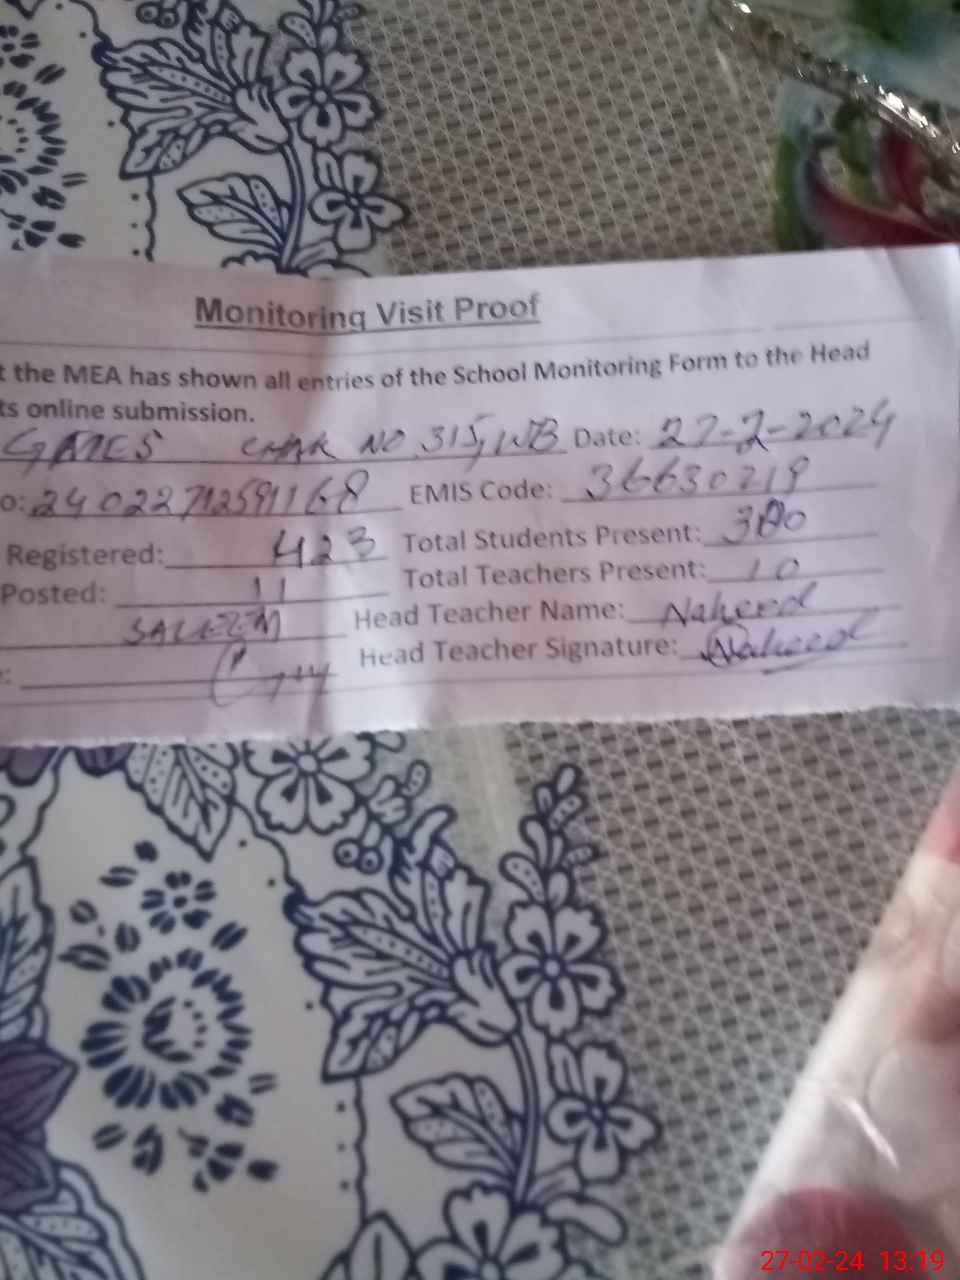 Monitoring Visit Proof
t the MEA has shown all entries of the School Monitoring Form to the Head
ts online submission.
CHAK NO. 315/WB Date: 27-2-2024
o: 24022712591168 EMIS Code: 36630219
Registered: 423 Total Students Present: 380
Posted: 11 Total Teachers Present: 10
SALEEM Head Teacher Name: Naheed
Head Teacher Signature: Naheed
27-02-24 13:19